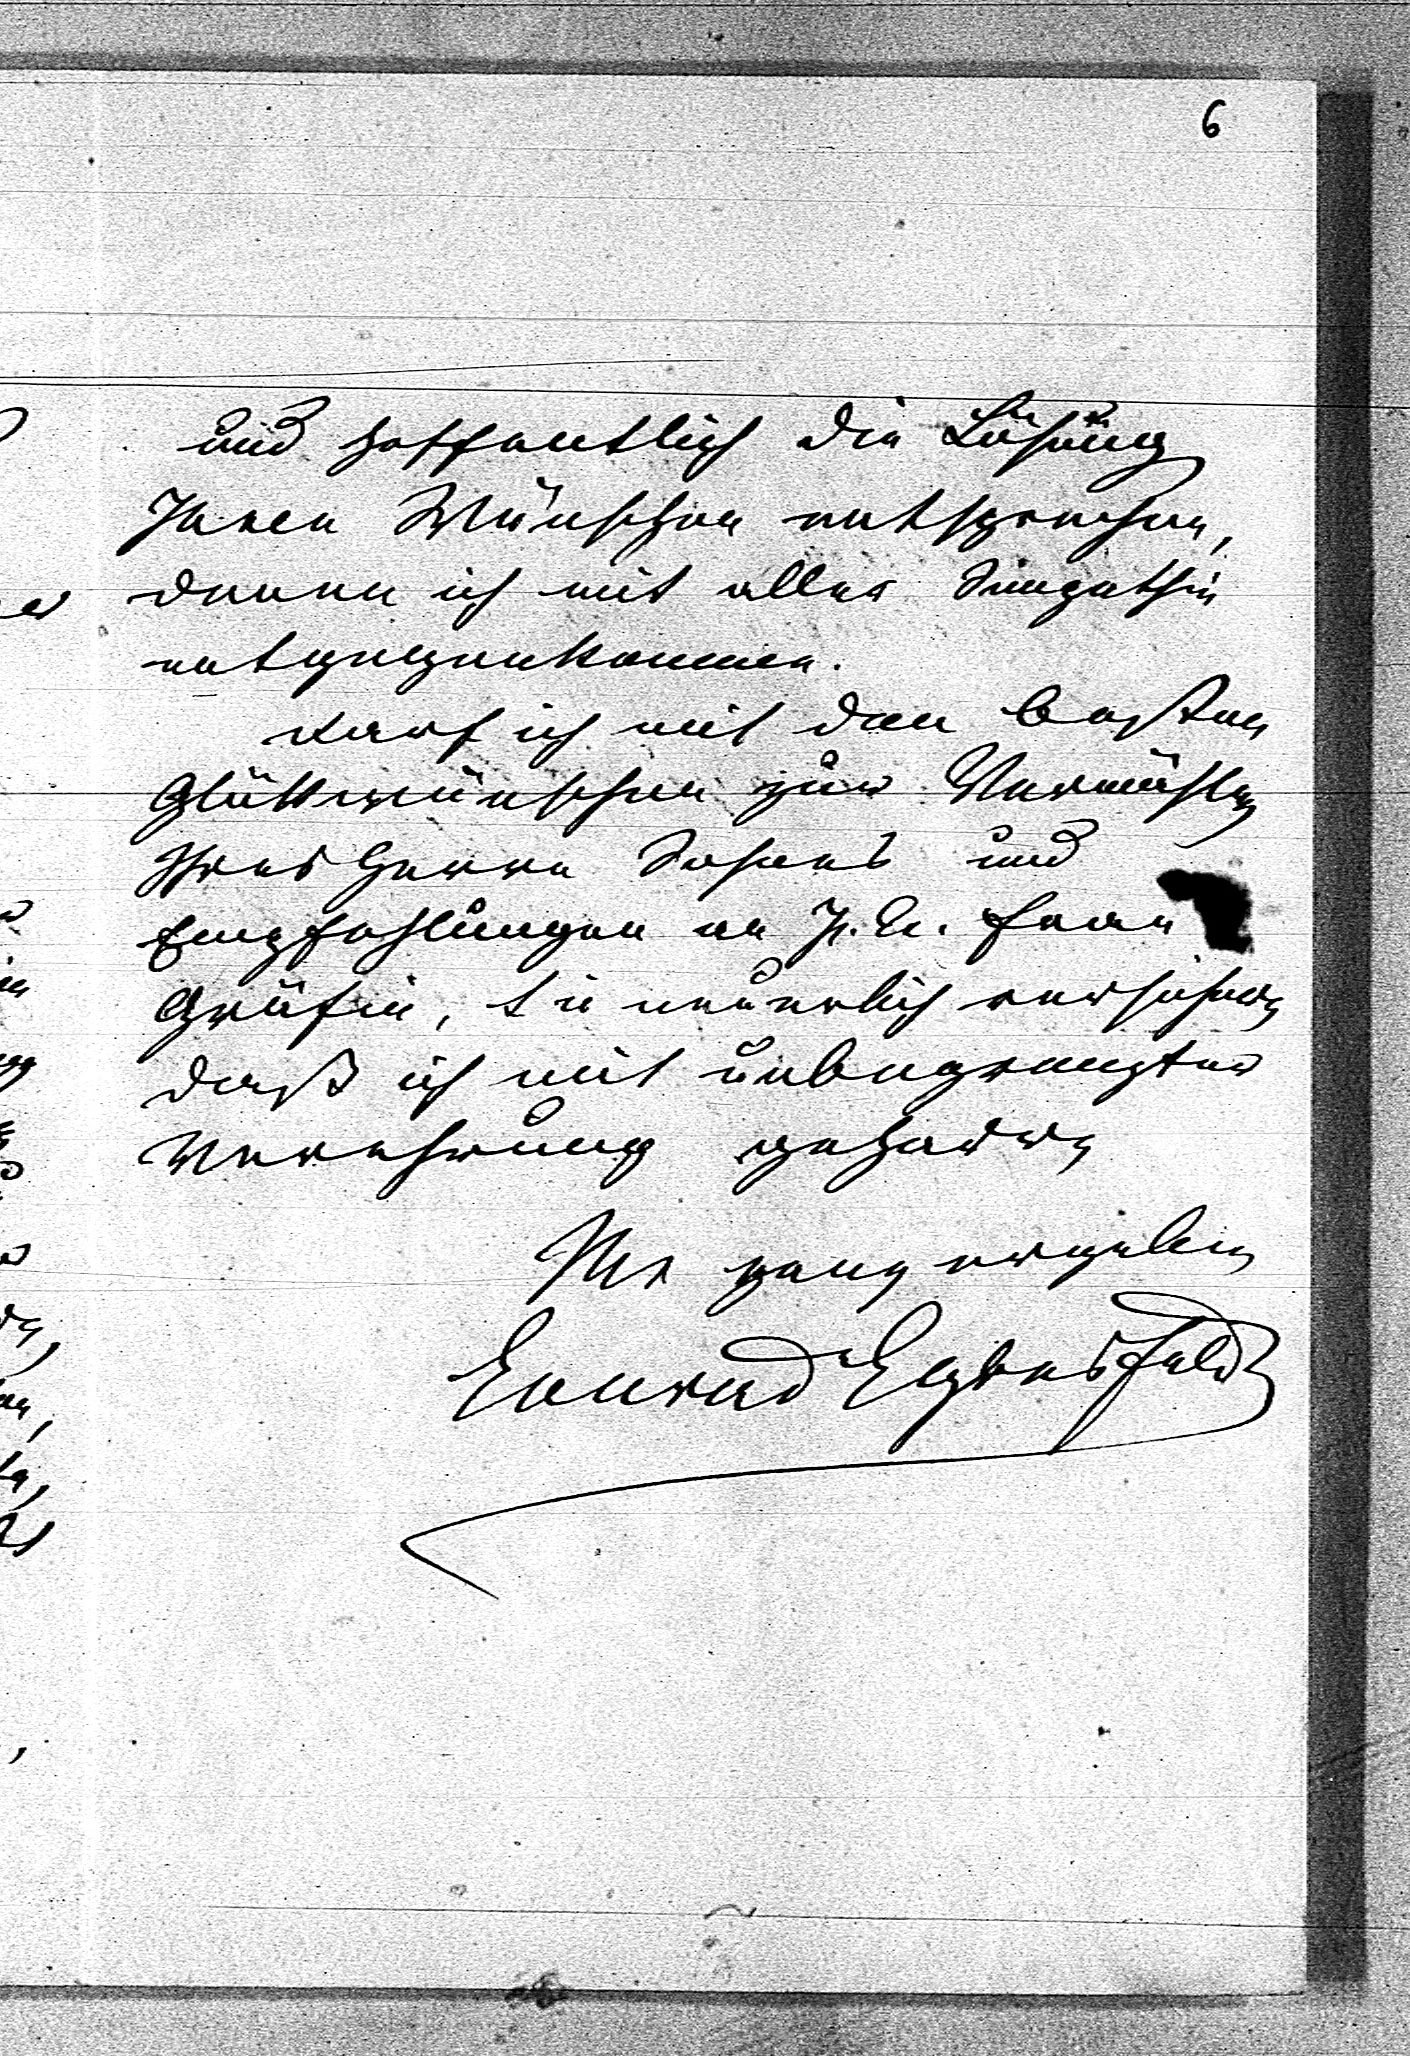 6
und hoffentlich die Lösung
Ihren Wünschen entsprechen,
denen ich mit aller Simpathie
entgegenkomme.
Darf ich mit den besten
Glükwünschen zur Vermählg
Ihres Herrn Sohnes und
Empfehlungen an I. E. Frau
Gräfin, Sie neuerlich versichern
daß ich mit unbegrenzter
Verehrung geharre
Ihr ganz ergeben
Conrad Eybesfeld